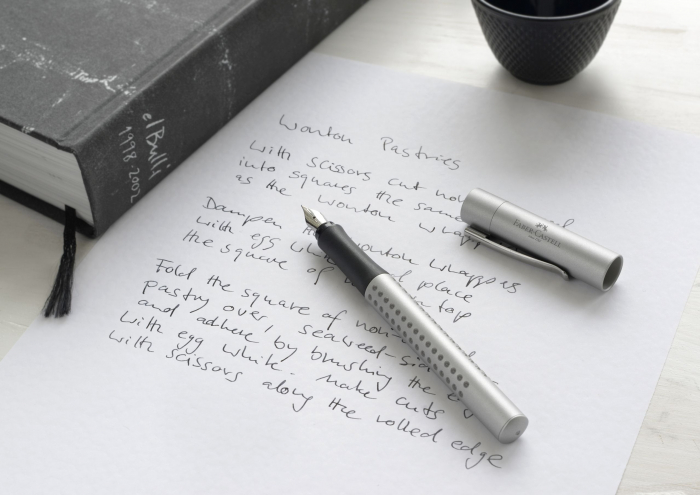 elBulli
1998-2002
Wonton Pastries
With scissors cut
into squares the same
as the wonton
Dampen the wonton wrappers
with egg white place
the square of top
Fold the square of
pastry over,
and adhere by brushing the
with egg white. Make cuts
with scissors along the rolled edge
FABER-CASTELL